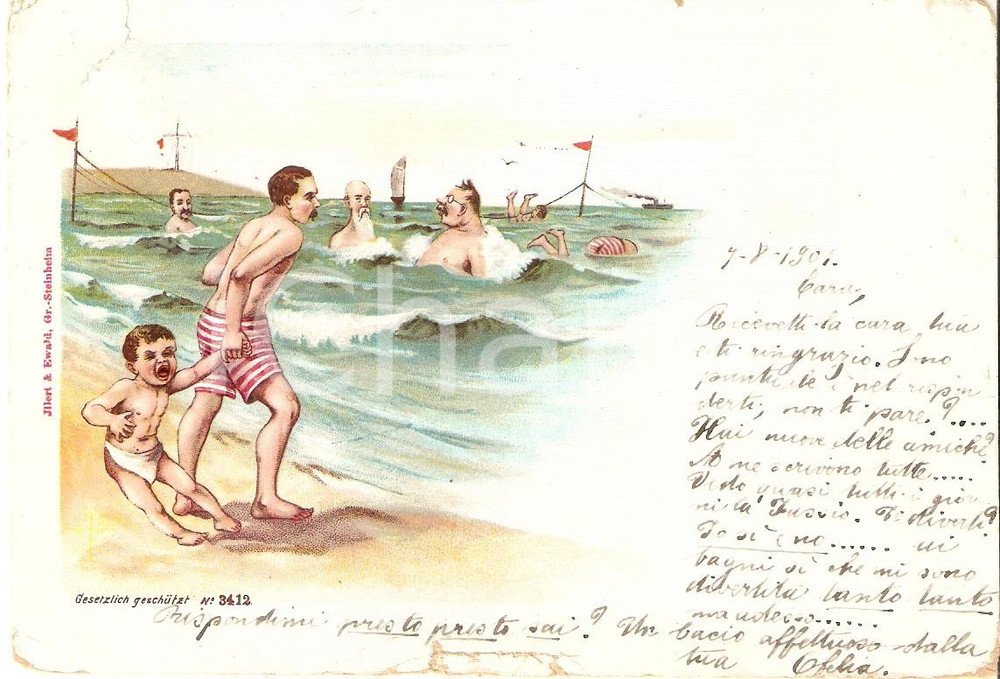 Illert & Ewald, Gr.-Steinheim
7-8-1901.
Cara,
Ricevetti la cara tua
e ti ringrazio. Sono
puntuale nel rispon
derti, non ti pare?....
Hai nuove delle amiche?
A me scrivono tutte.....
Vedo quasi tutti i gior-
ni la Fuscio. Ti diverti?
Io sì e no...... ai
bagni sì che mi sono
divertita tanto tanto
ma adesso......
Gesetzlich geschützt No 3412
Rispondimi presto presto sai? Un bacio affettuoso dalla
tua Ofelia.
Cha